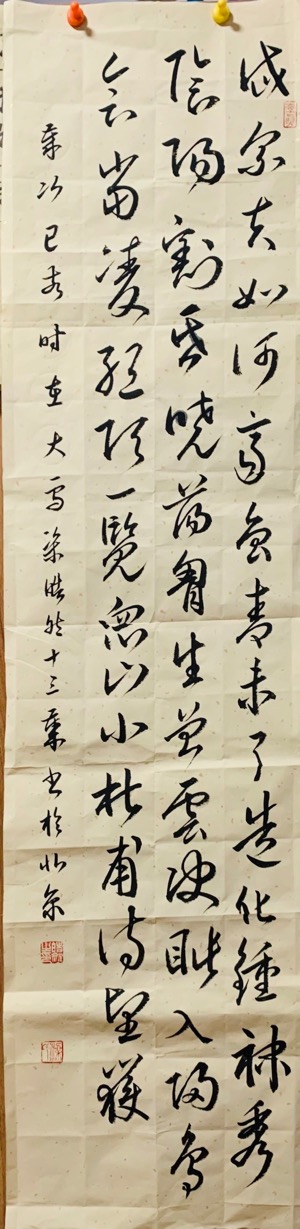 岱宗夫如何齊魯青未了造化鍾神秀
陰陽割昏曉蕩胷生曾雲決眥入歸鳥
會當凌絕頂一覽眾山小杜甫詩望嶽
歲次己亥时在大雪梁皓然十三歲书於北京